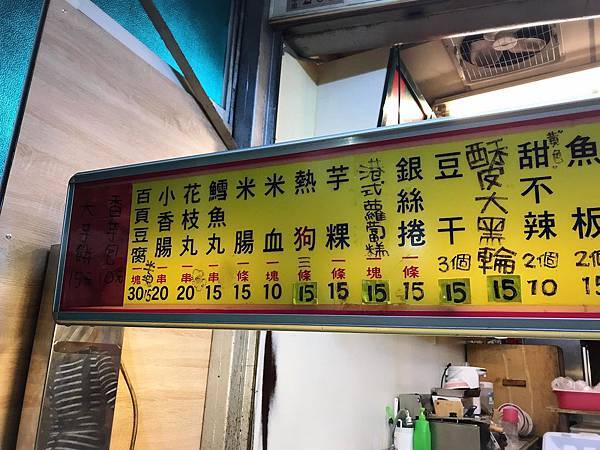 魚板 2個 15
甜不辣 2個 10
酥皮大黑輪 15
豆干 3個 15
銀絲捲 一條 15
港式蘿蔔糕 一塊 15
芋粿 一條 15
熱狗 條 15
米血 一塊 10
米腸 一條 15
鱈魚丸 一串 15
花枝丸 一串 20
小香腸 一串 20
百頁豆腐 一塊 30
15